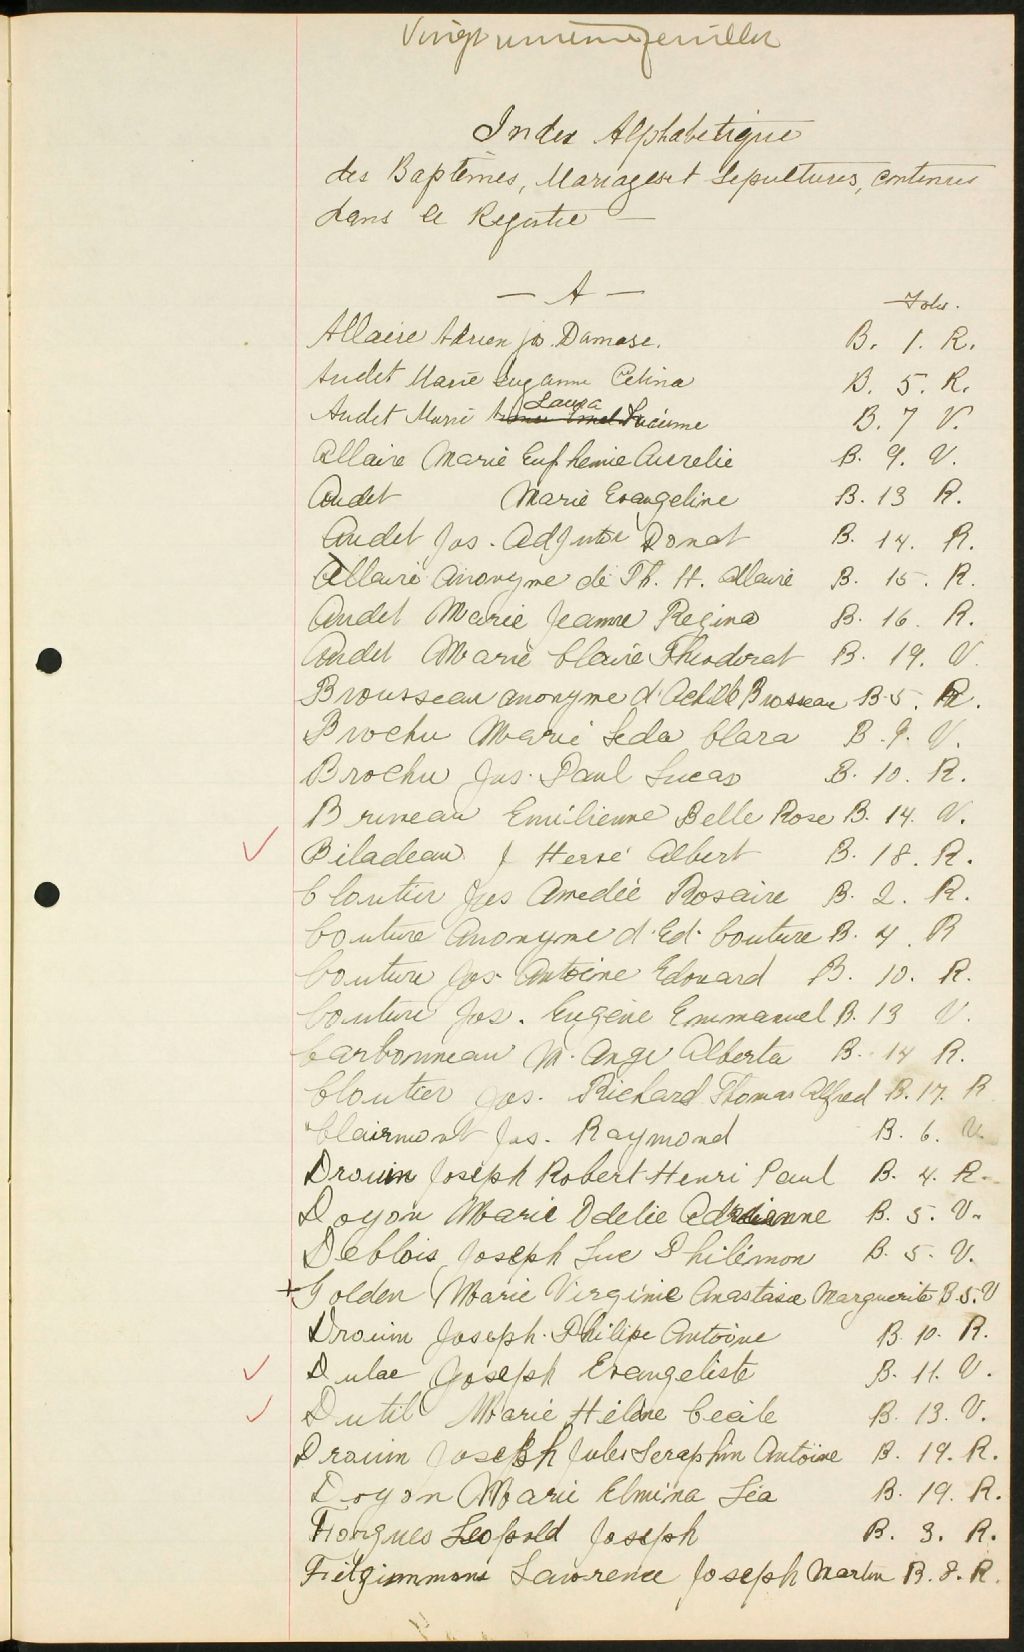 Vingt unieme feuillet
Index Alphabetique
des Baptêmes, Mariages et Sepultures, contenus
dans le Registre —
— A —
Folio.
Allaire Adrien Jos. Damase. B. 1. R.
Audet Marie Suzanne Celina B. 5. R.
Laura
Audet Marie Lucienne B. 7 V.
Allaire Marie Euphemie Aurelie B. 9. V.
Audet Marie Evangeline B. 13 R.
Audet Jos. Adjutor Donat B. 14. R.
Allaire Anonyme de Th. H. Allaire B. 15. R.
Audet Marie Jeanne Regina B. 16. R.
Audet Marie Claire Theodorat B. 19. V.
Brousseau anonyme d'Achille Brosseau B. 5. R.
Brochu Marie Leda Clara B. 9. V.
Brochu Jos. Paul Lucas B. 10. R.
Bruneau Emilienne Belle Rose B. 14. V.
Biladeau J Hervé Albert B. 18. R.
Cloutier Jos Amedée Rosaire B. 2. R.
Couture Anonyme d'Ed. Couture B. 4. R
Couture Jos. Antoine Edouard B. 10. R.
Couture Jos. Eugène Emmanuel B. 13 V.
Carbonneau M. Ange Alberta B. 14 R.
Cloutier Jos. Richard Thomas Alfred B. 17. R
Clairmont Jos. Raymond B. 6. V.
Drouin Joseph Robert Henri Paul B. 4. R.
Doyon Marie Odelie Adrienne B. 5. V.
Deblois Joseph Luc Philémon B. 5. V.
+ Golden Marie Virginie Anastasie Marguerite B. 5. V
Drouin Joseph Philipe Antoine B. 10. R.
Dulac Joseph Evangeliste B. 11. V.
Dutil Marie Hélène Cecile B. 13. V.
Drouin Joseph Jules Seraphin Antoine B. 19. R.
Doyon Marie Elmina Léa B. 19. R.
Forgues Leopold Joseph B. 3. R.
Fitzgimmons Lawrence Joseph Martin B. 8. R.